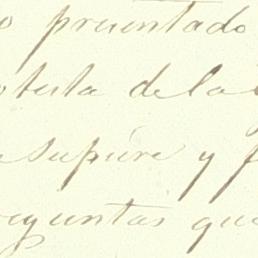 o presentado
otesta de la
supiere y
reguntas que